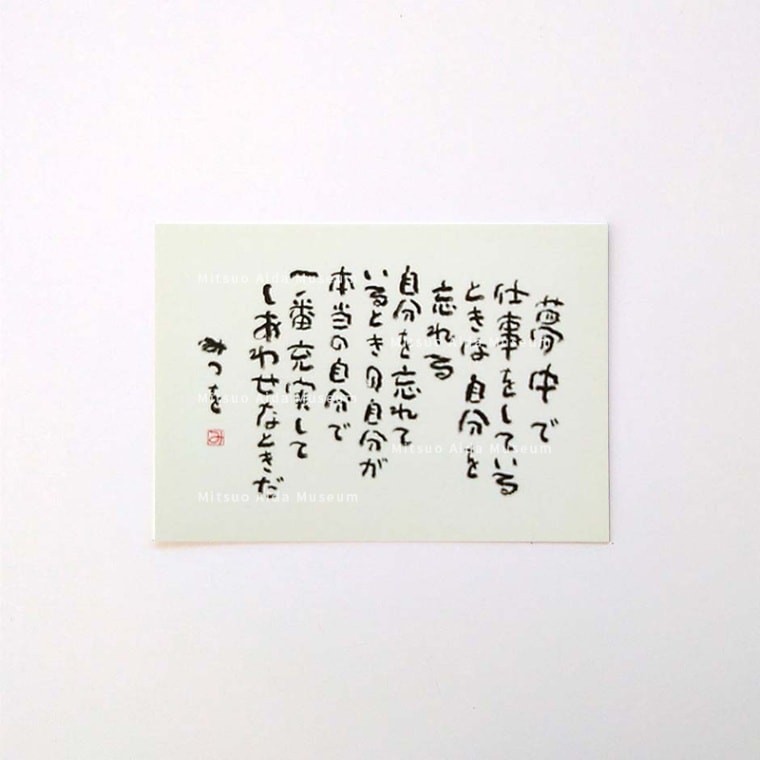 夢中で
仕事をしている
ときは自分を
忘れる
自分を忘れて
いるときの自分が
本当の自分で
一番充実して
しあわせなときだ
みつを
み
Mitsuo Aida Museum
Mitsuo Aida Museum
Mitsuo Aida Museum
Mitsuo Aida Museum
Mitsuo Aida Museum